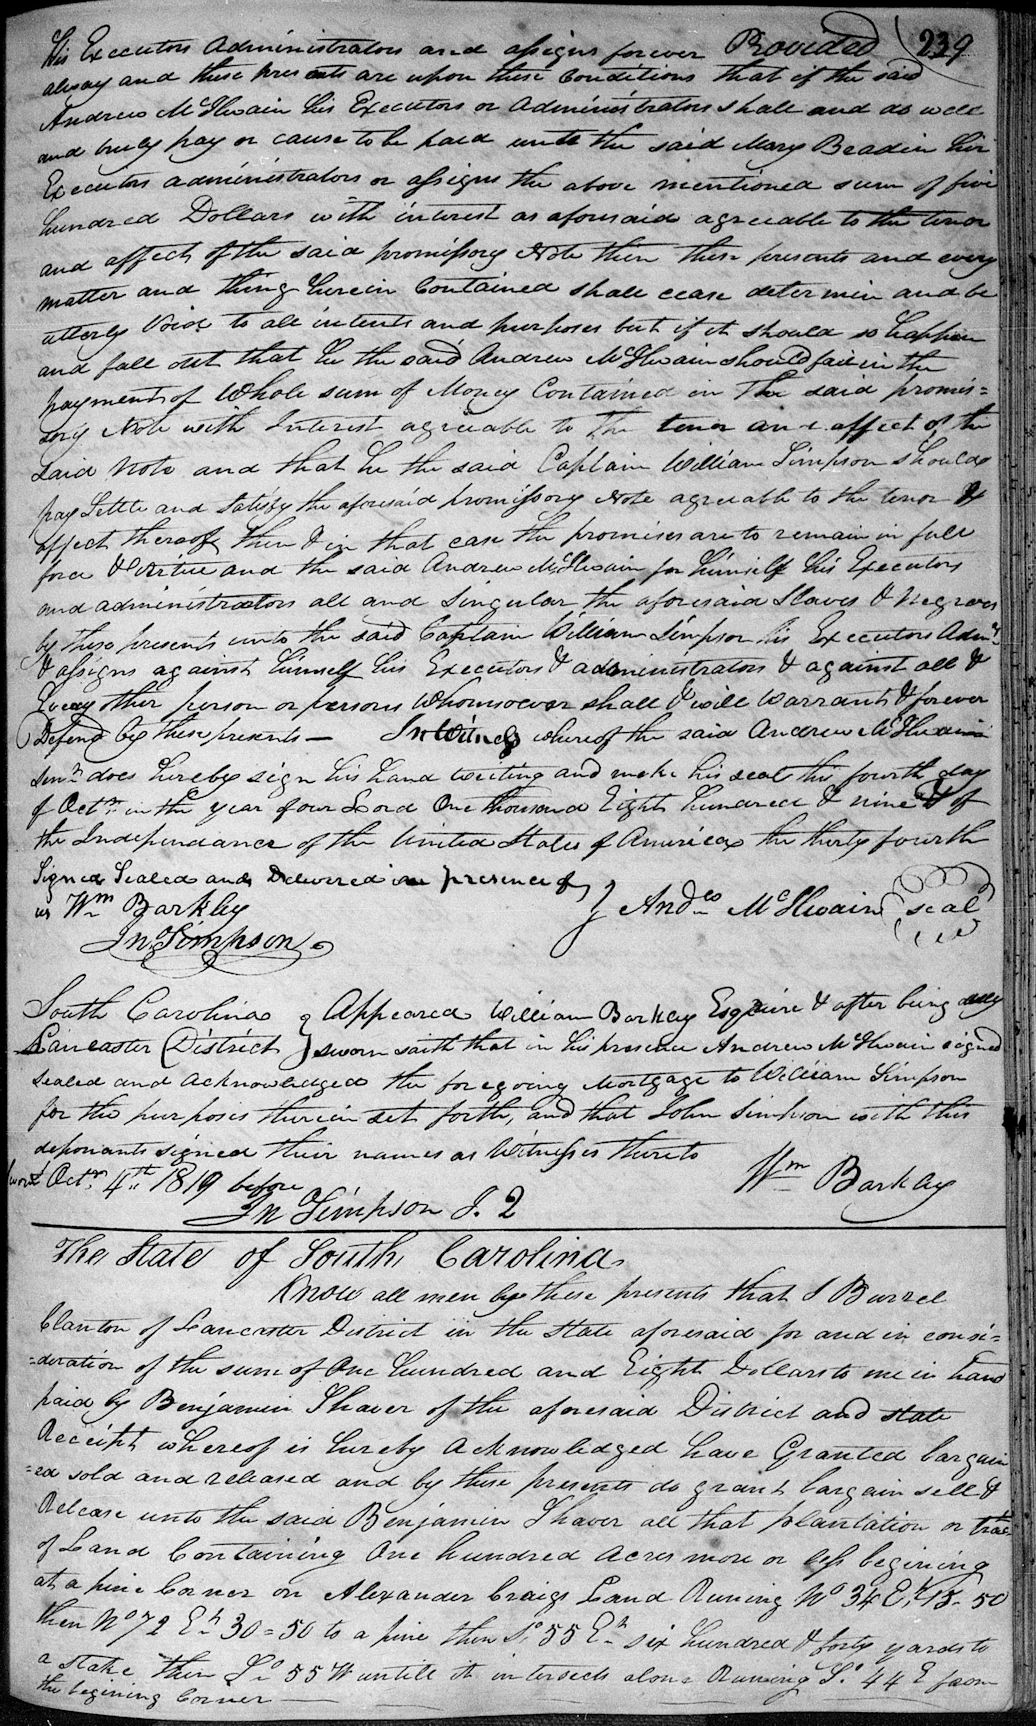 239
his Executors Administrators and assigns forever Provided
alway and these presents are upon these Conditions that if the said
Andrew McIlwain his Executors or Administrators shall and do well
and truly pay or cause to be paid unto the said Mary Bradin her
Executors administrators or assigns the above mentioned sum of five
hundred Dollars with interest as aforesaid agreeable to the tenor
and affect of the said promissory Note then these presents and every
matter and thing herein Contained shall cease determin and be
utterly Void to all intents and purposes but if it should so happen
and fall out that he the said Andrew McIlwain should fail in the
payment of Whole sum of Money Contained in The said promis=
sory Note with Interest agreeable to The tenor and affect of the
said Note and that he the said Captain William Simpson should
pay Settle and Satisfy the aforesaid promissory Note agreeable to the tenor &
affect thereof then & in that case the promises are to remain in full
force & Virtue and the said Andrew McIlwain for himself his Executors
and administrators all and Singular the aforesaid Slaves & Negroes
by these presents unto the said Captain William Simpson his Executors Admrs
& assigns against himself his Executors & administrators & against all &
Every other person or persons Whomsoever shall & will Warrant & forever
Defend by these presents — In Witness whereof the said Andrew McIlwain
Senr does hereby sign his hand writing and make his seal this fourth day
of Octr in the year of our Lord One thousand Eight hundred & nine & of
the Independance of the United States of America the thirty fourth
Signed Sealed and Delivered in presence of
us Wm Barkley } Andw McIlwain seal
Jn Simpson
South Carolina } Appeared William Barkley Esquire & after being duly
Lancaster District } sworn saith that in his presence Andrew McIlwain signed
sealed and Acknowledged the foregoing Mortgage to William Simpson
for the purposes therein set forth, and that John Simpson with this
deponants signed their names as Witnesses thereto
Sworn Octr 4th 1819 before Wm Barkley
Jn Simpson J. Q
The State of South Carolina
Know all men by these presents that I Burrel
Clanton of Lancaster District in the State aforesaid for and in consi=
=deration of the sum of One hundred and Eight Dollars to me in hand
paid by Benjamin Thaver of the aforesaid District and state
Receipt whereof is hereby Acknowledged have Granted bargain
=ed sold and released and by these presents do grant bargain sell &
Release unto the said Benjamin Thaver all that plantation or trac
of Land Containing One hundred Acres more or less begining
at a pine Corner on Alexander Craigs Land Runing No 34 Et 15-50
then No 72 Et 30=50 to a pine then So 55 Et six hundred & forty yards to
a stake then So 55 W untill it intersects alone Running So 44 E from
the begining Corner —